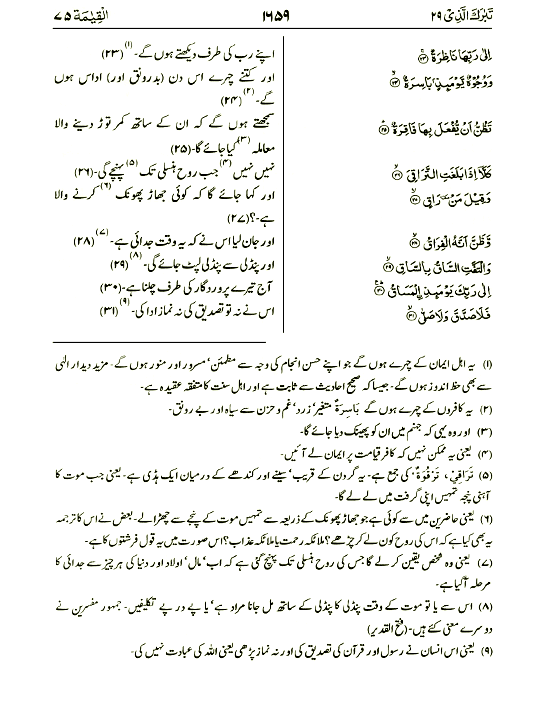 تَبٰرَكَ الَّذِیْ ۲۹
۱۶۵۹
الْقِیٰمَة ۷۵
اِلٰى رَبِّهَا نَاظِرَةٌ ۟
وَوُجُوْهٌ یَّوْمَىِٕذٍۭ بَاسِرَةٌ ۟
تَظُنُّ اَنْ یُّفْعَلَ بِهَا فَاقِرَةٌ ۟
كَلَّاۤ اِذَا بَلَغَتِ التَّرَاقِیَ ۟
وَقِیْلَ مَنْ ٚ رَاقٍ ۟
وَّظَنَّ اَنَّهُ الْفِرَاقُ ۟
وَالْتَفَّتِ السَّاقُ بِالسَّاقِ ۟
اِلٰى رَبِّكَ یَوْمَىِٕذِ ١لْمَسَاقُ ۟
فَلَا صَدَّقَ وَلَا صَلّٰى ۟
اپنے رب کی طرف دیکھتے ہوں گے۔ (۱) (۲۳)
اور کتنے چہرے اس دن (بد رونق اور) اداس ہوں
گے۔ (۲) (۲۴)
سمجھتے ہوں گے کہ ان کے ساتھ کمر توڑ دینے والا
معاملہ (۳) کیا جائے گا۔ (۲۵)
نہیں نہیں (۴) جب روح ہنسلی تک (۵) پہنچے گی۔ (۲۶)
اور کہا جائے گا کہ کوئی جھاڑ پھونک (۶) کرنے والا
ہے۔؟ (۲۷)
اور جان لیا اس نے کہ یہ وقت جدائی ہے۔ (۷) (۲۸)
اور پنڈلی سے پنڈلی لپٹ جائے گی۔ (۸) (۲۹)
آج تیرے پروردگار کی طرف چلنا ہے۔ (۳۰)
اس نے نہ تو تصدیق کی نہ نماز ادا کی۔ (۹) (۳۱)
(۱) یہ اہل ایمان کے چہرے ہوں گے جو اپنے حسن انجام کی وجہ سے مطمئن‘ مسرور اور منور ہوں گے۔ مزید دیدار الٰہی
سے بھی حظ اندوز ہوں گے۔ جیسا کہ صحیح احادیث سے ثابت ہے اور اہل سنت کا متفقہ عقیدہ ہے۔
(۲) یہ کافروں کے چہرے ہوں گے بَاسِرَةٌ متغیر‘ زرد‘ غم و حزن سے سیاہ اور بے رونق۔
(۳) اور وہ یہی کہ جہنم میں ان کو پھینک دیا جائے گا۔
(۴) یعنی یہ ممکن نہیں کہ کافر قیامت پر ایمان لے آئیں۔
(۵) تَرَاقِيَ، تَرْقُوَةٌ کی جمع ہے۔ یہ گردن کے قریب‘ سینے اور کندھے کے درمیان ایک ہڈی ہے۔ یعنی جب موت کا
آہنی پنجہ تمہیں اپنی گرفت میں لے لے گا۔
(۶) یعنی حاضرین میں سے کوئی ہے جو جھاڑ پھونک کے ذریعہ سے تمہیں موت کے پنجے سے چھڑا لے۔ بعض نے اس کا ترجمہ
یہ بھی کیا ہے کہ اس کی روح کون لے کر چڑھے؟ ملائکہ رحمت یا ملائکہ عذاب؟ اس صورت میں یہ قول فرشتوں کا ہے۔
(۷) یعنی وہ شخص یقین کر لے گا جس کی روح ہنسلی تک پہنچ گئی ہے کہ اب‘ مال‘ اولاد اور دنیا کی ہر چیز سے جدائی کا
مرحلہ آگیا ہے۔
(۸) اس سے یا تو موت کے وقت پنڈلی کا پنڈلی کے ساتھ مل جانا مراد ہے‘ یا پے در پے تکلیفیں۔ جمہور مفسرین نے
دوسرے معنی کئے ہیں۔ (فتح القدیر)
(۹) یعنی اس انسان نے رسول اور قرآن کی تصدیق کی اور نہ نماز پڑھی یعنی اللہ کی عبادت نہیں کی۔